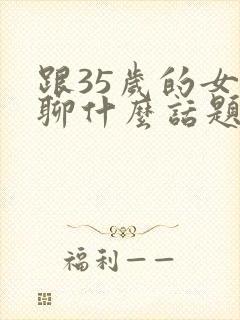 跟35歲的女
聊什麼話題
福利——